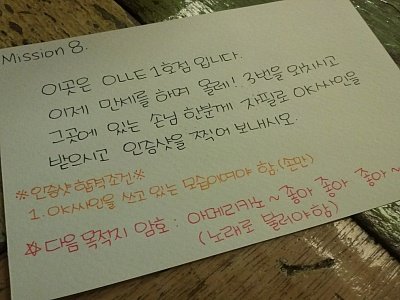 Mission 8.
이곳은 OLLE 1호점 입니다.
이제 만세를 하며 올레! 3번을 외치시고
그곳에 있는 손님 한분께 자필로 OK사인을
받으시고 인증샷을 찍어 보내시오.
※인증샷 합격조건※
1. OK사인을 쓰고 있는 모습이여야 함. (손만)
☆다음 목적지 암호 : 아메리카노~ 좋아 좋아 좋아~
(노래로 불러야함)